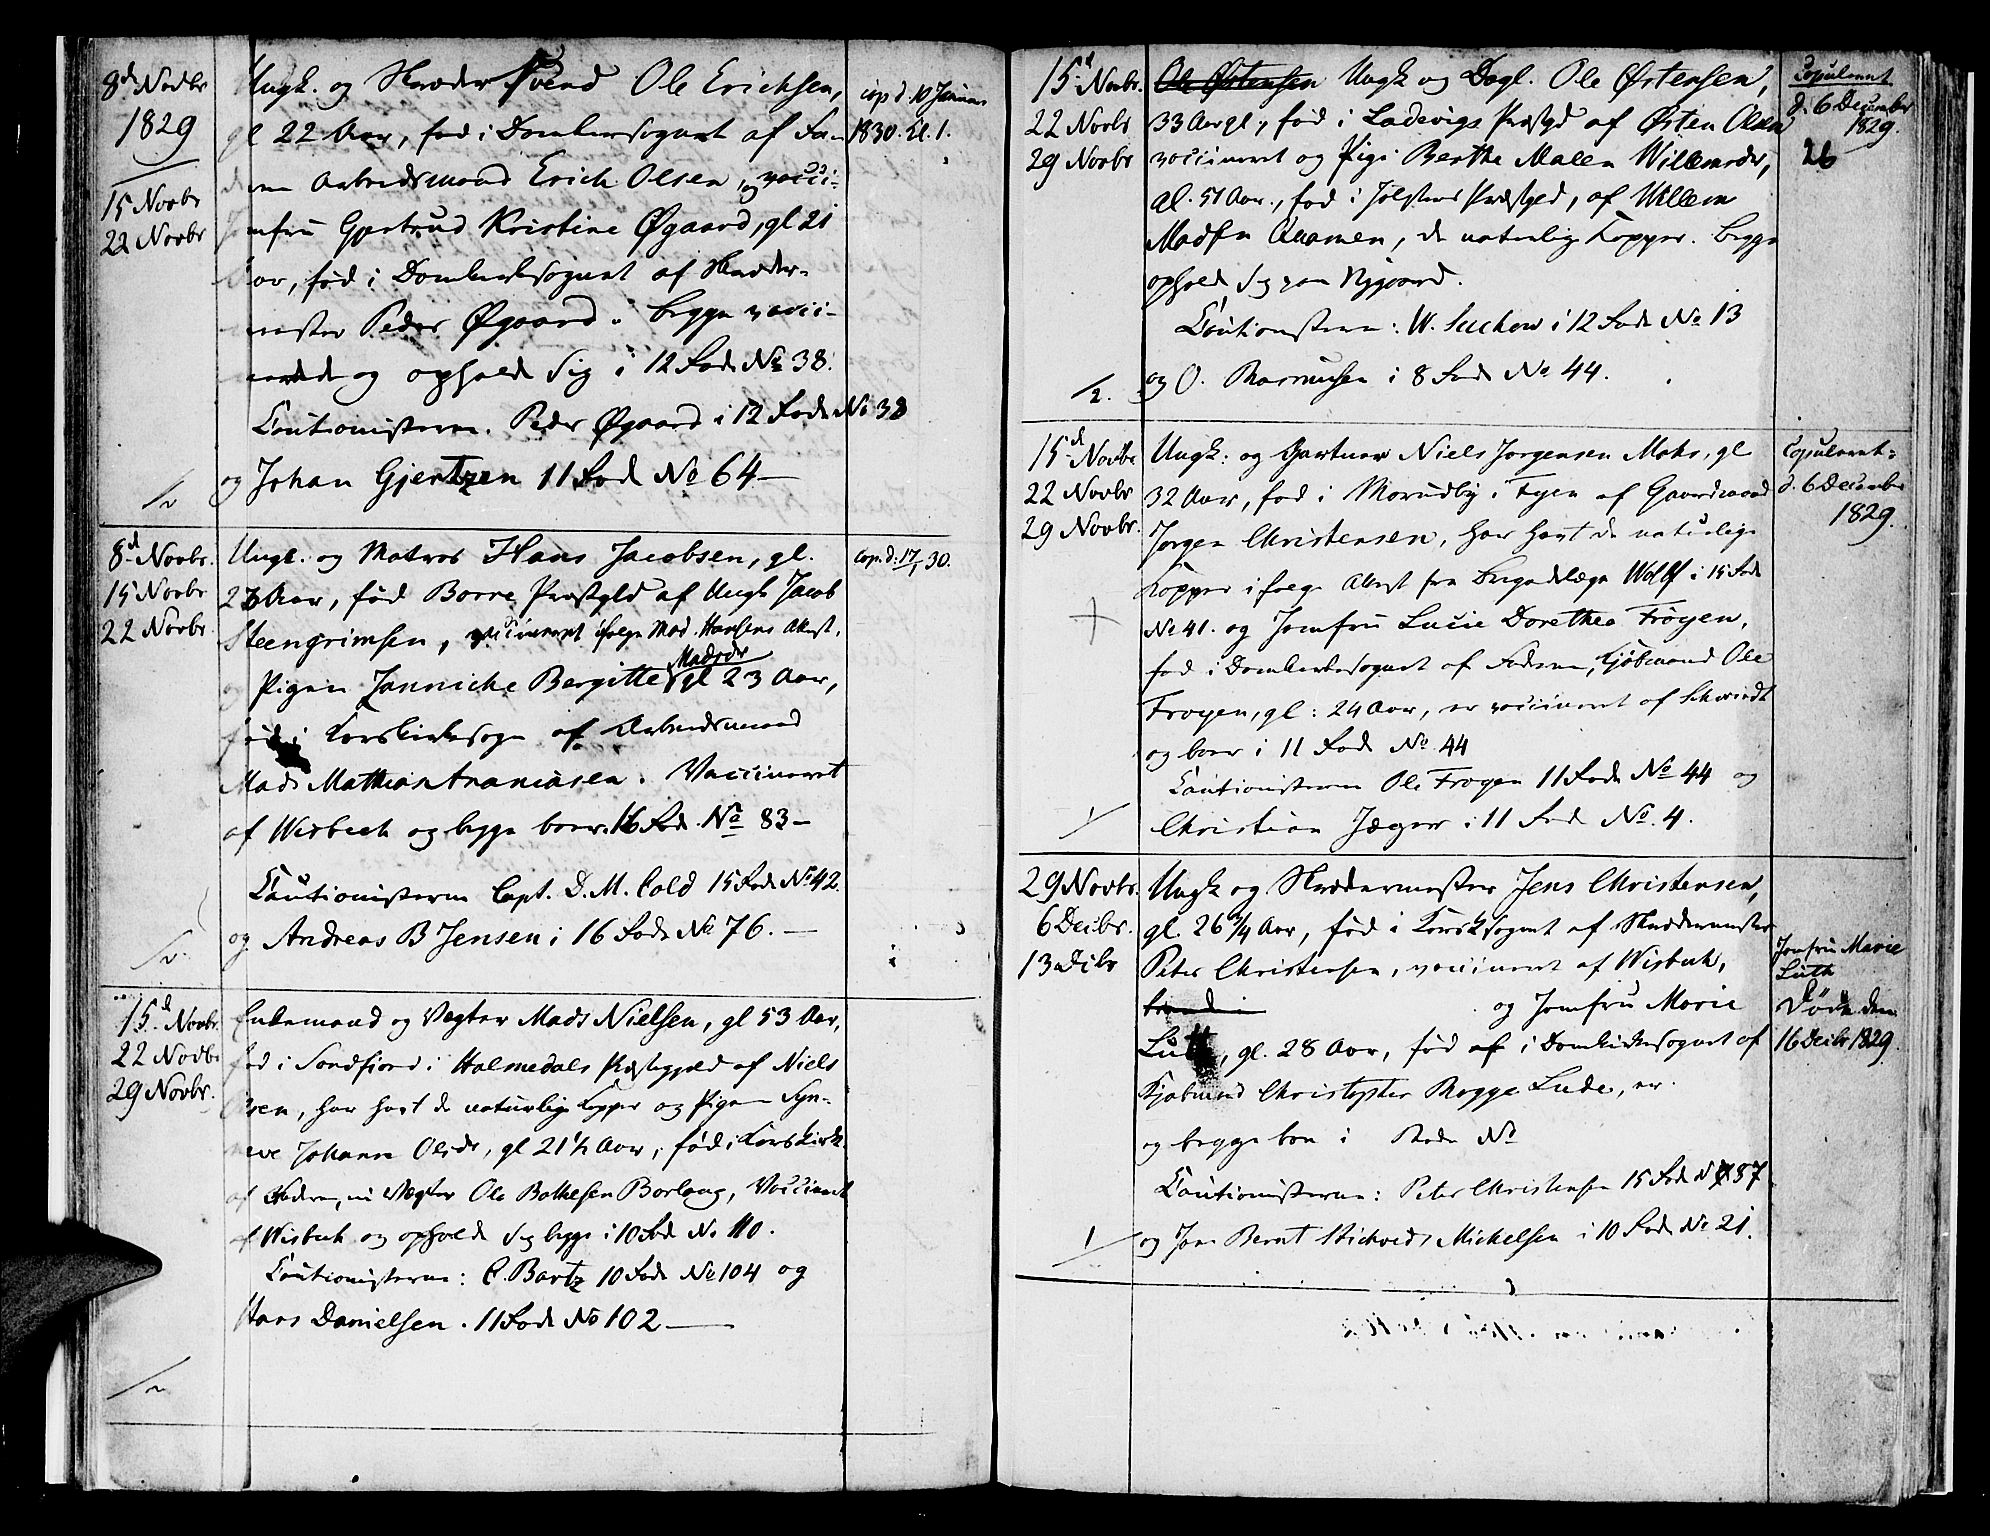 8de Novbr
1829
15 Novbr
22 Novbr
Ungk. og Skræder Svend Ole Erichsen,
gl 22 Aar, fød i Domkirkesognet af
Arbeidsmand Erich Olsen, og
Jomfru Gjertrud Kristine Øgaard, gl 21
Aar, fød i Domkirkesognet af Skræder-
mester Peder Øgaard. begge vacci-
nerede og opholde sig i 12 Rode No 38.
Cautionisterne. Peder Øgaard i 12 Rode No 38
og Johan Gjertzen 11 Rode No 64 —
cop d. 10 Januar
1830. El. 1.
8d Novbr.
15 Novbr
22 Novbr.
Ungk. og Matros Hans Jacobsen, gl.
Aar, fød Borre Præstgld af Ungk Jacob
Steengrimsen, vaccineret ifølge Mad. Hansens Attest,
Madsdr
og Pigen Jannicke Bergitte gl 23 Aar,
fød i Korskirkesogn af Arbeidsmand
Mads Mathias Ananiasen. Vaccineret
af Wisbech og begge boer 16 Rode No 83 —
Cautionisterne Capt. D. M. Cold 15 Rode No 42.
og Andreas B Jensen i 16 Rode No 76. —
Cop. d. 17/1 30.
15d Novbr.
22 Novbr
29 Novbr.
Enkemand og Vægter Mads Nielsen, gl 53 Aar,
fød i Sondfjord i Holmedals Præstegjeld af Niels
Olsen, har havt de naturlige Kopper og Pigen Syn-
neve Johanne Olsdr, gl 21 1/2 Aar, fød i Korskirk.
af Vægter Ole Bothesen Borlaug, Vaccineret
af Wisbech og opholde sig begge i 10 Rode No 110.
Cautionisterne: C. Bartz 10 Rode No 104 og
Hans Danielsen. 11 Rode No 102 —
15d Novbr.
22 Novbr
29 Novbr
Ole Østensen Ungk og Dagl. Ole Østensen,
33 Aar gl., fød i Ladevigs Præstgd af Østen Olsen
vaccineret og Pige Berthe Malen Willemsdr,
gl. 51 Aar., fød i Jølsters Præstgld, af Willem
Madsen Aaamen, de naturlige Kopper. begge
opholde sig paa Nygaard.
Cautionisterne: W. Suchow i 12 Rode No 13
og O. Rasmusen i 8 Rode No 44.
Copuleret
d. 6 December
1829.
26
15d Novbr
22 Novbr
29 Novbr.
Ungk: og Gartner Niels Jørgensen Mohr, gl
32 Aar, fød i Morudby i Fyen af Gaardmand
Jørgen Christensen, har havt de naturlige
Kopper ifølge Attest fra Brigadelæge Wolff i 15 Rode
No 41. og Jomfru Lucie Dorethea Frøyen,
fød i Domkirkesognet af Kjøbmand Ole
Frøyen, gl: 24 Aar, er vaccineret af Schwindt
og boer i 11 Rode No 44
Cautionisterne Ole Frøyen 11 Rode No 44 og
Christian Jæger i 11 Rode No. 4.
Copuleret
d. 6 December
1829.
29 Novbr.
6 Decbr.
13 Decbr
Ungk og Skrædermester Jens Christensen,
gl. 26 3/4 Aar, fød i Korsksognet af Skrædermester
Peter Christensen, vaccineret af Wisbech,
og Jomfru Marie
Lutt, gl. 28 Aar, fød af i Domkirkesognet af
Kjøbmand Christopher Rogge Lude, er
og begge boe i Rode No
Cautionisterne: Peter Christensen 15 Rode No 87
og Jan Bernt Michelsen i 10 Rode No 21.
Jomfru Marie
Lüth
Døde den
16 Decbr 1829.